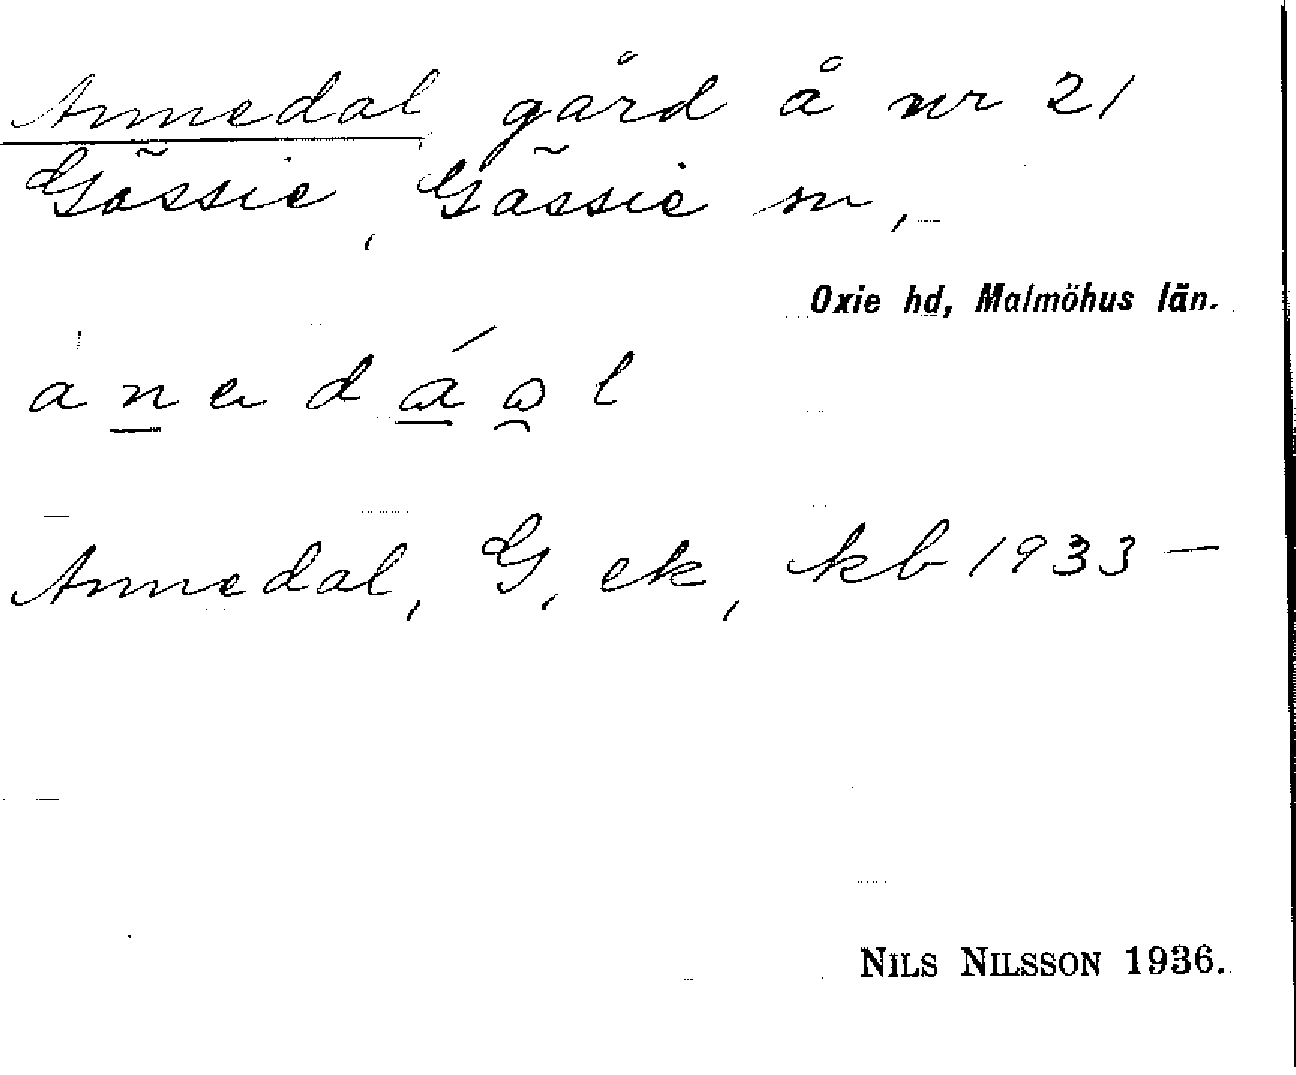 Annedal gård å nr 21
Gässie, Gässie sn,
Oxie hd, Malmöhus län.
Annedal, G, ek, kb 1933 —
NILS NILSSON 1936.